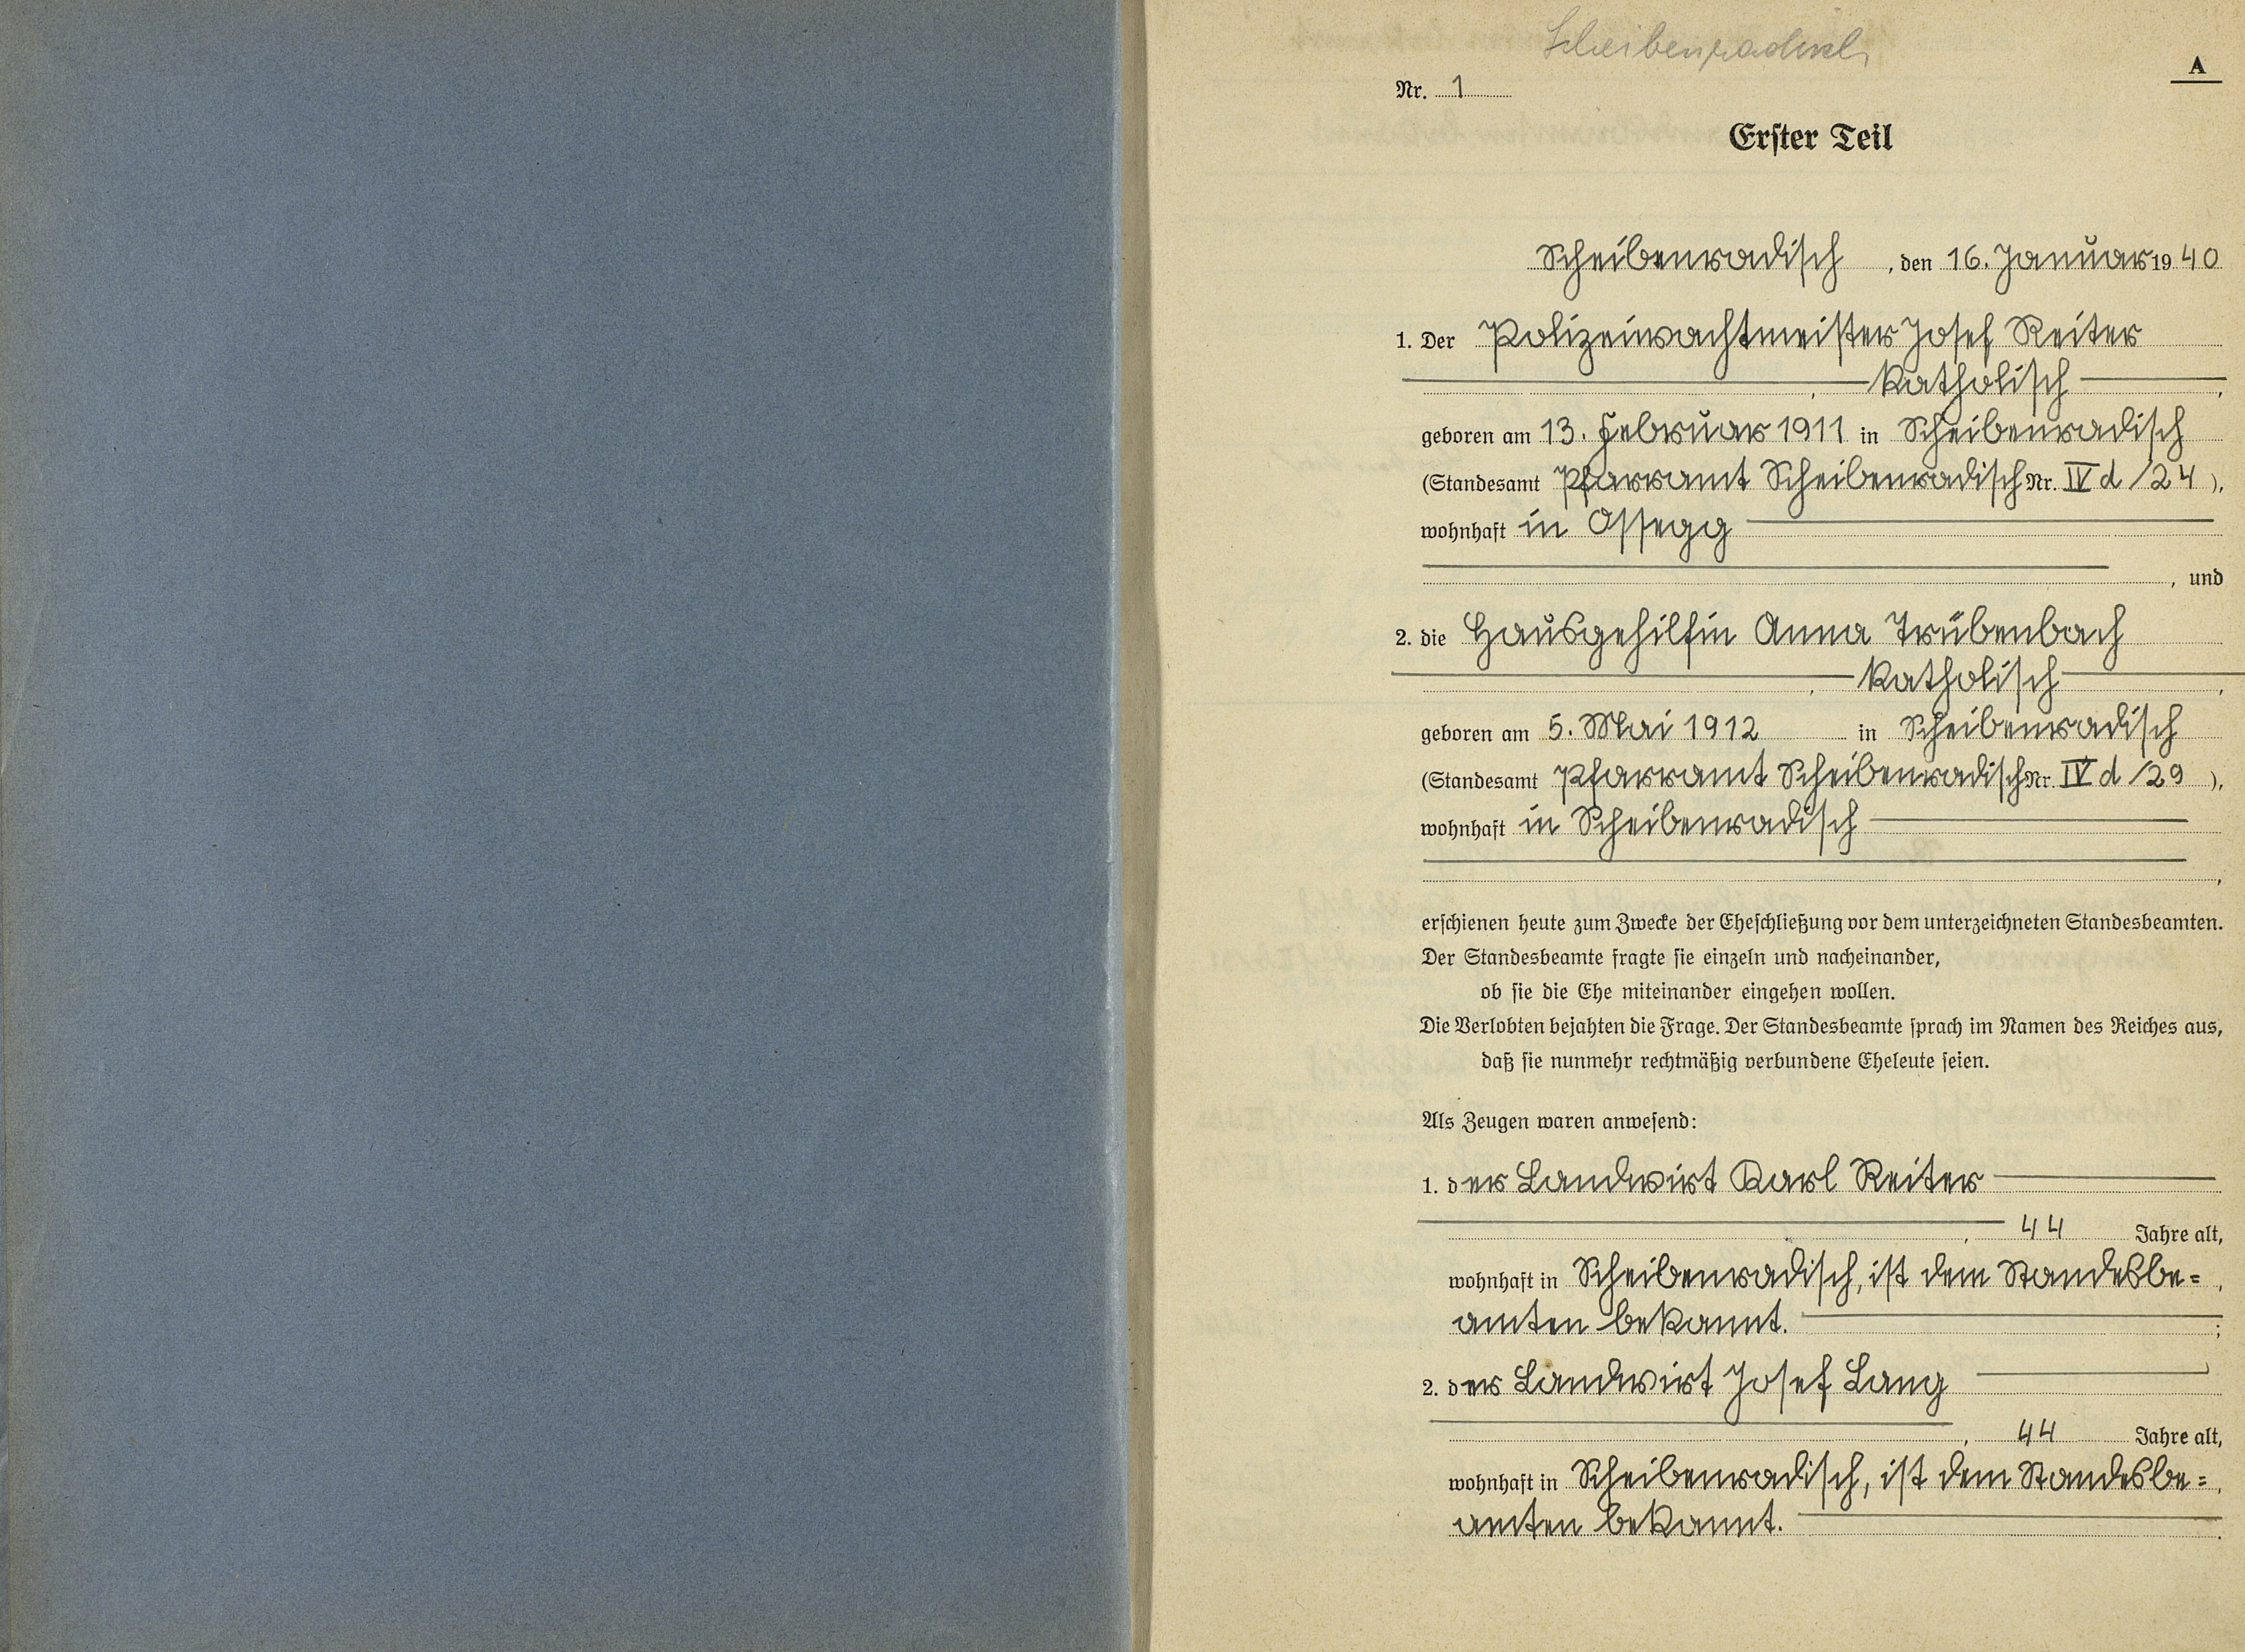 Scheibenradisch
A
Nr. 1
Erster Teil
Scheibenradisch, den 16. Januar 1940
1. Der Polizeiwachtmeister Josef Reiter
, katholisch,
geboren am 13. Februar 1911 in Scheibenradisch
(Standesamt Pfarramt Scheibenradisch Nr. IV d /24),
wohnhaft in Ossegg
, und
2. die Hausgehilfin Anna Trübenbach
, katholisch,
geboren am 5. Mai 1912 in Scheibenradisch
(Standesamt Pfarramt Scheibenradisch Nr. IV d /29),
wohnhaft in Scheibenradisch
,
erschienen heute zum Zwecke der Eheschließung vor dem unterzeichneten Standesbeamten.
Der Standesbeamte fragte sie einzeln und nacheinander,
ob sie die Ehe miteinander eingehen wollen.
Die Verlobten bejahten die Frage. Der Standesbeamte sprach im Namen des Reiches aus,
daß sie nunmehr rechtmäßig verbundene Eheleute seien.
Als Zeugen waren anwesend:
1. der Landwirt Karl Reiter
, 44 Jahre alt,
wohnhaft in Scheibenradisch, ist dem Standesbe=,
amten bekannt. ;
2. der Landwirt Josef Lang
, 44 Jahre alt,
wohnhaft in Scheibenradisch, ist dem Standesbe=,
amten bekannt. .